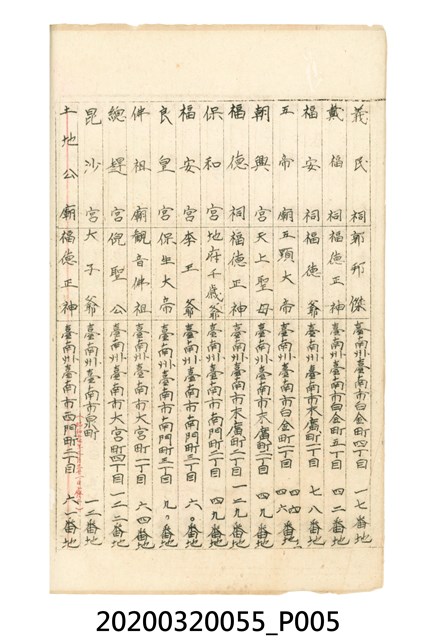 義民祠 郭邦傑 臺南州臺南市白金町四丁目 一七番地
戴福祠 福德正神 臺南州臺南市白金町五丁目 四二番地
福安祠 福德爺 臺南州臺南市末廣町二丁目 七八番地
五帝廟 五顯大帝 臺南州臺南市白金町一丁目
朝興宮 天上聖母 臺南州臺南市末廣町一丁目 四九番地
福德祠 福德正神 臺南州臺南市末廣町二丁目 一二九番地
保和宮 地府千歲爺 臺南州臺南市南門町二丁目 四九番地
福安宮 李王爺 臺南州臺南市南門町三丁目 六〇番地
良皇宮 保生大帝 臺南州臺南市南門町三丁目 九番地
佛祖廟 觀音佛祖 臺南州臺南市大宮町二丁目 六四番地
總趕宮 倪聖公 臺南州臺南市大宮町四丁目 一二二番地
昆沙宮 太子爺 臺南州臺南市泉町 一二番地
土地公廟 福德正神 臺南州臺南市西門町二丁目 六一番地
20200320055_P005